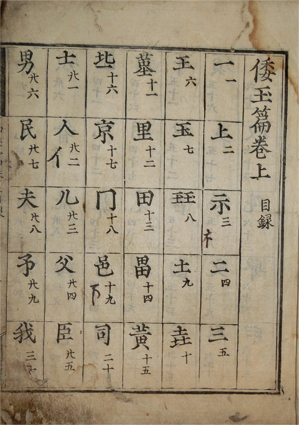 倭玉篇卷上
目録
一 一
上 二
示 三 礻
二 四
三 五
王 六
玉 七
玨 八
土 九
垚 十
墓 十一
里 十二
田 十三
畕 十四
黃 十五
丠 十六
京 十七
冂 十八
邑 十九 阝
司 二十
士 廿一
人 廿二 亻
儿 廿三
父 廿四
臣 廿五
男 廿六
民 廿七
夫 廿八
予 廿九
我 三十